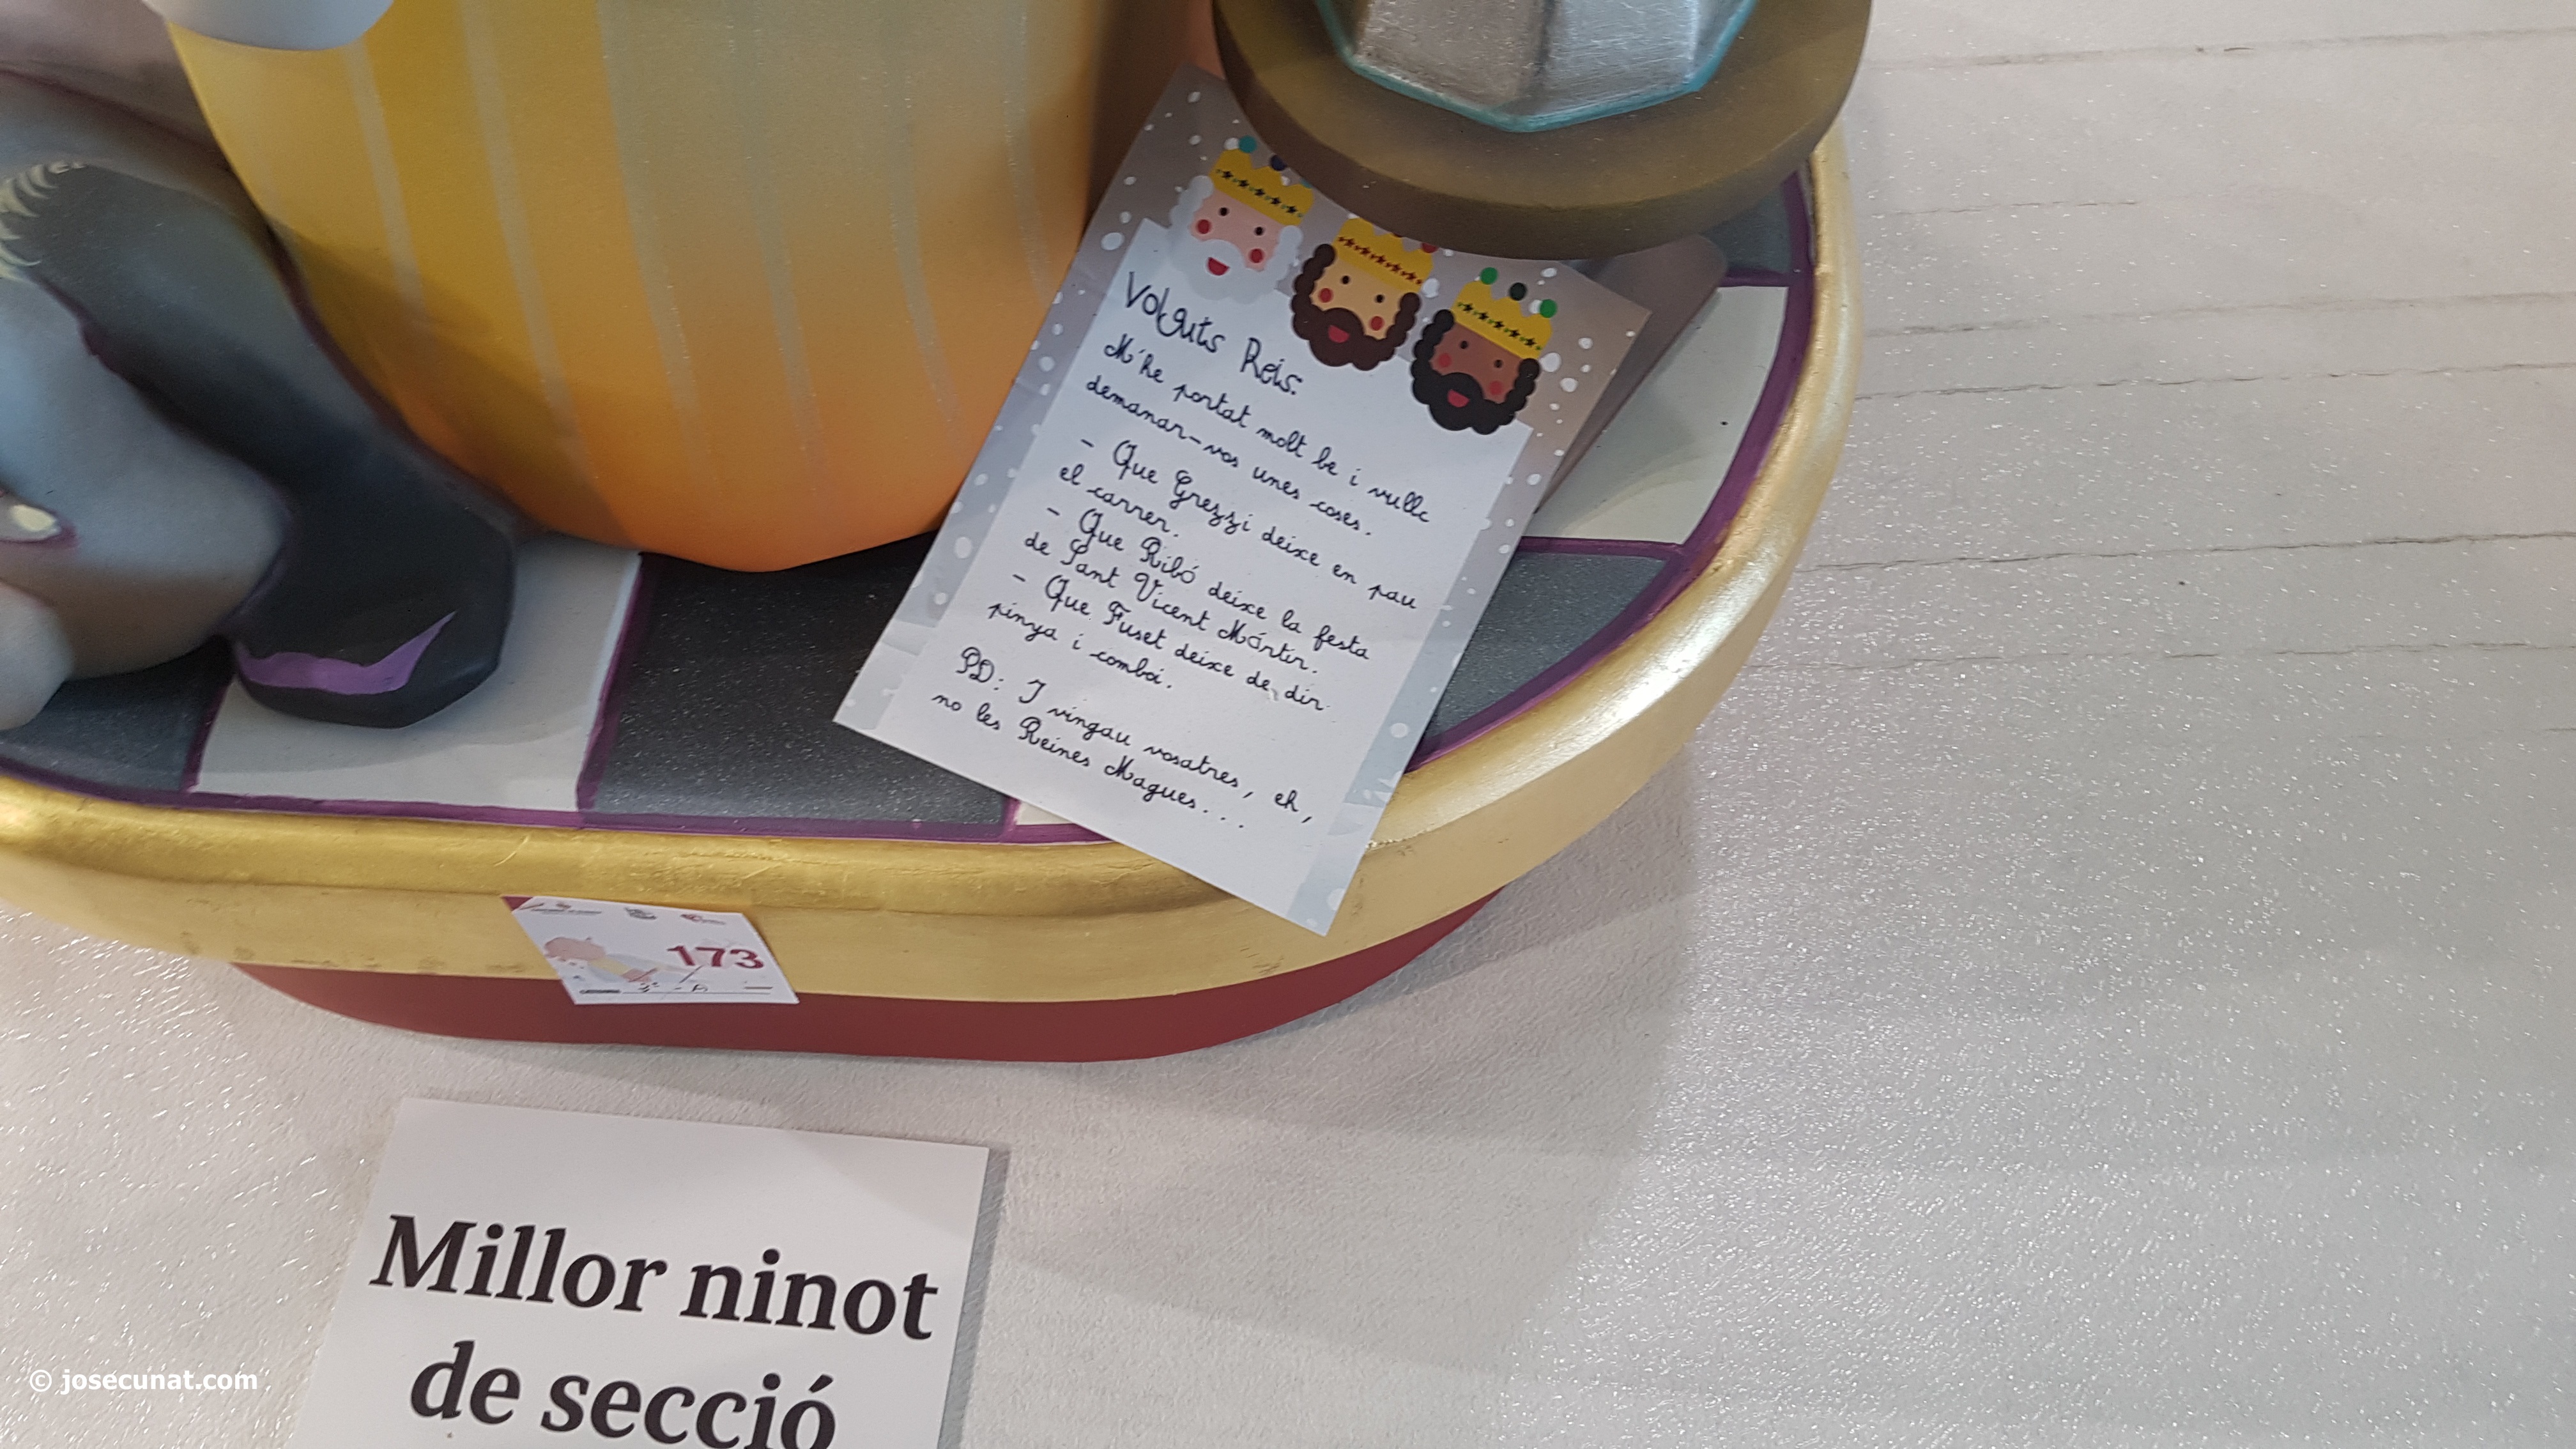 Volguts Reis:
M'he portat molt be i vullc
demanar-vos unes coses.
- Que Grezzi deixe en pau
el carrer.
- Que Ribó deixe la festa
de Sant Vicent Mártir.
- Que Fuset deixe de dir
pinya i comboi.
PD: I vingau vosatres, eh,
no les Reines Magues...
173
Millor ninot
de secció
© josecunat.com